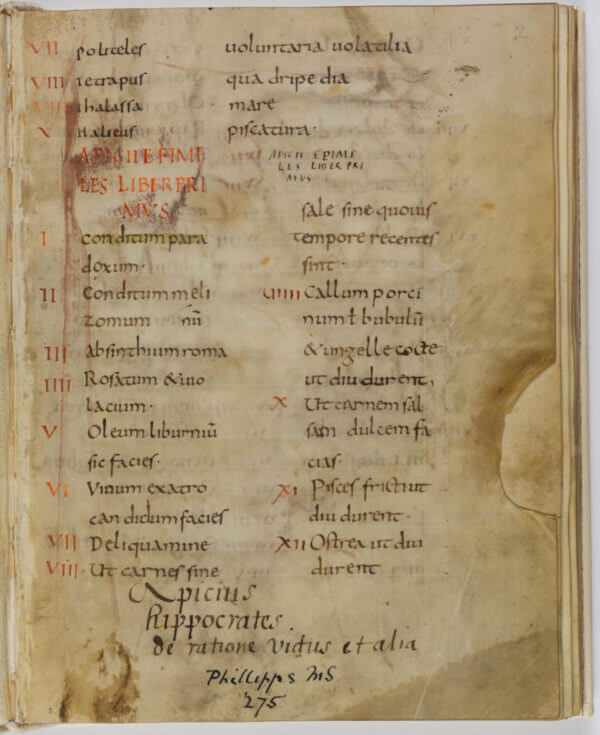 2
VII politeles voluntaria volatilia
VIII tetrapus quadripedia
VIIII thalassa mare
X Halieus· piscatura·
APICII EPIME
LES LIBER PRI
MUS
APICII EPIME
LES LIBER PRI
MUS
I conditum para
doxum·
II Conditum meli
zomum
III absinthium roma
nū
IIII Rosatum & vio
lacium·
V Oleum liburniū
sic facies·
VI Vinum exatro
candidum facies
VII De liquamine
VIII· Ut carnes sine
sale sine quovis
tempore recentes
sint·
VIIII Callum porci
num ł bubulū
& ungelle cocte
ut diu durent,
X Ut carnem sal
sam dulcem fa
cias·
XI Pisces fricti ut
diu durent·
XII Ostrea ut diu
durent
Apicius
hippocrates.
de ratione victus et alia
Phillipps MS
275